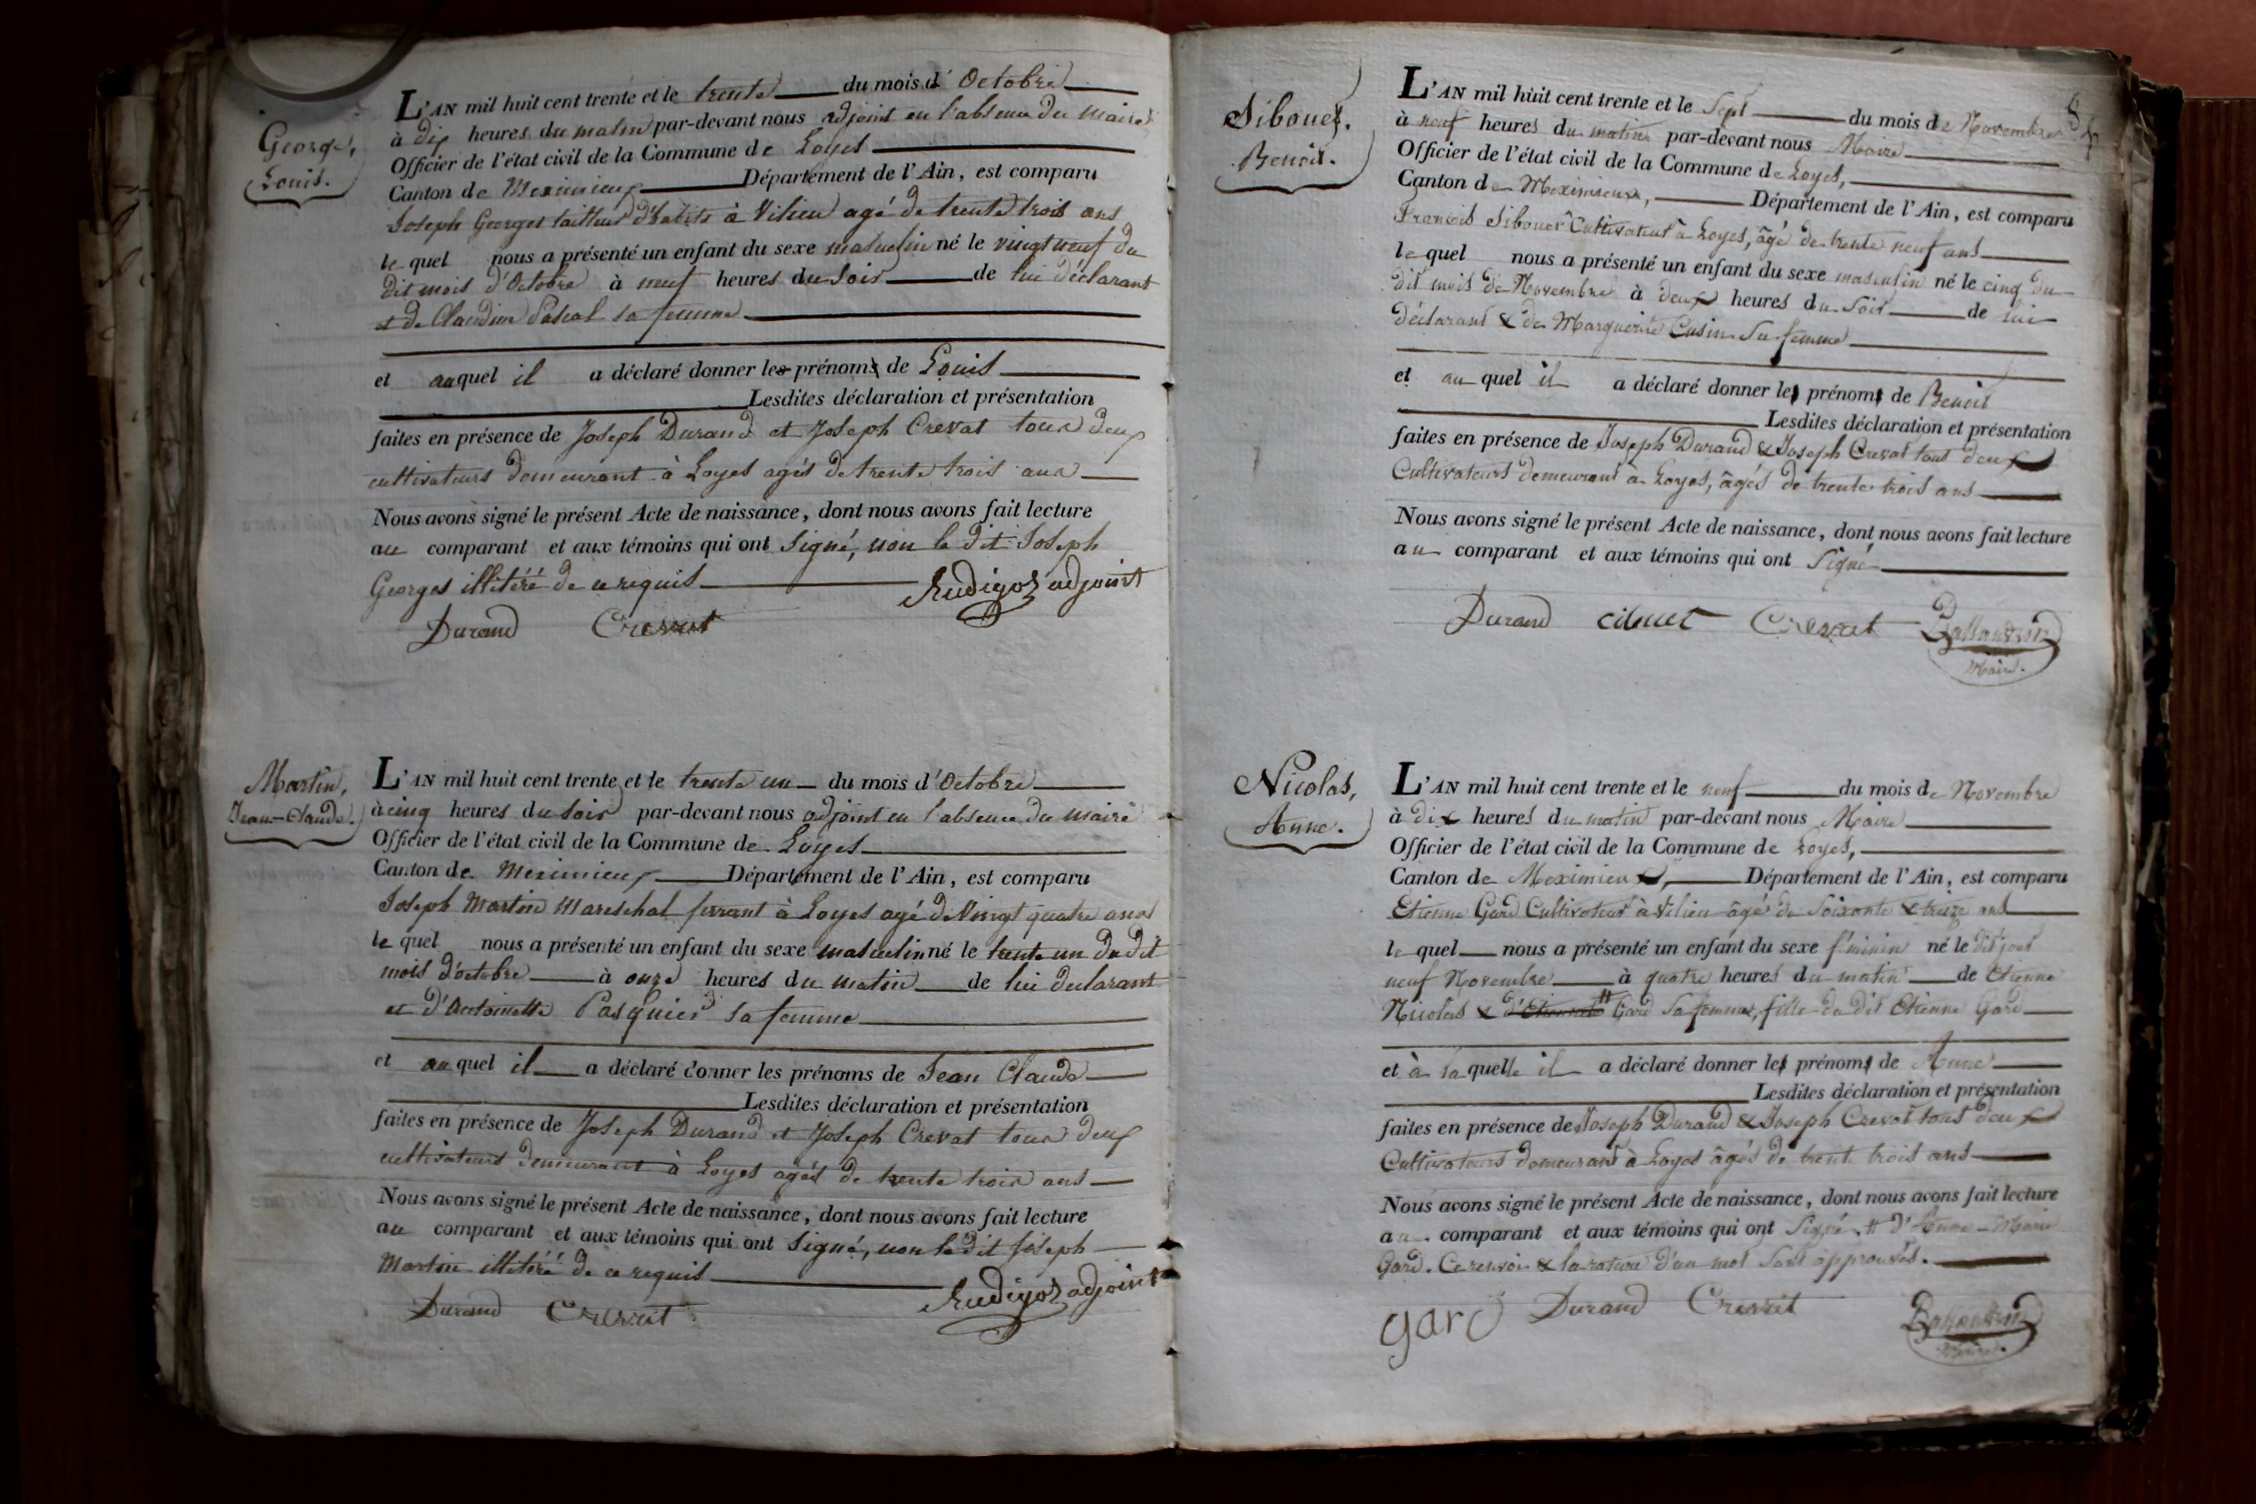 George,
Louis.
L'AN mil huit cent trente et le trente du mois d'Octobre
à dix heures du matin par-devant nous adjoint en l'absence du maire
Officier de l'état civil de la Commune de Loyes
Canton de Meximieux Département de l'Ain, est comparu
Joseph Georges tailleur d'habits à Vilieu agé de trente trois ans
le quel nous a présenté un enfant du sexe masculin né le vingt neuf du
dit mois d'Octobre à neuf heures du soir de lui déclarant
et de Claudine Pascal sa femme
et auquel il a déclaré donner les prénoms de Louis
Lesdites déclaration et présentation
faites en présence de Joseph Durand et Joseph Crevat tous deux
cultivateurs demeurant à Loyes agés de trente trois ans
Nous avons signé le présent Acte de naissance, dont nous avons fait lecture
au comparant et aux témoins qui ont Signé, non le dit Joseph
Georges illitéré de ce requis
Rudigoz adjoint
Durand Crevat
Martin,
Jean-Claude.
L'AN mil huit cent trente et le trente un du mois d'Octobre
à cinq heures du soir par-devant nous adjoint en l'absence du maire
Officier de l'état civil de la Commune de Loyes
Canton de Meximieux Département de l'Ain, est comparu
Joseph Martin Mareschal ferrant à Loyes agé de Vingt quatre ans
le quel nous a présenté un enfant du sexe masculin né le trente un du dit
mois d'octobre à onze heures du matin de lui declarant
et d'Antoinette Pasquier sa femme
et auquel il a déclaré donner les prénoms de Jean Claude
Lesdites déclaration et présentation
faites en présence de Joseph Durand et Joseph Crevat tous deux
cultivateurs demeurant à Loyes agés de trente trois ans
Nous avons signé le présent Acte de naissance, dont nous avons fait lecture
au comparant et aux témoins qui ont Signé, non le dit Joseph
Martin illitéré de ce requis
Rudigoz adjoint
Durand Crevat
Sibouez.
Benoit.
L'AN mil huit cent trente et le Sept du mois de Novembre
à neuf heures du matin par-devant nous Maire
Officier de l'état civil de la Commune de Loyes,
Canton de Meximieux, Département de l'Ain, est comparu
François Cultivateur à Loyes, âgé de trente neuf ans
le quel nous a présenté un enfant du sexe masculin né le cinq du
dit mois de Novembre à deux heures du Soir de lui
déclarant & de Marguerite Cusin Sa femme
et au quel il a déclaré donner les prénoms de Benoit
Lesdites déclaration et présentation
faites en présence de Joseph Durand & Joseph Crevat tous deux
Cultivateurs demeurant à Loyes, âgés de trente trois ans
Nous avons signé le présent Acte de naissance, dont nous avons fait lecture
au comparant et aux témoins qui ont Signé
Durand Crevat
Maire.
Nicolas,
Anne.
L'AN mil huit cent trente et le neuf du mois de Novembre
à dix heures du matin par-devant nous Maire
Officier de l'état civil de la Commune de Loyes,
Canton de Meximieux, Département de l'Ain, est comparu
Etienne Gard Cultivateur à Vilieu âgé de Soixante & treize ans
le quel nous a présenté un enfant du sexe féminin né le dit jour
neuf Novembre à quatre heures du matin de Etienne
Nicolas & # Gard Sa femme, fille du dit Etienne Gard
et à la quelle il a déclaré donner les prénoms de Anne
Lesdites déclaration et présentation
faites en présence de Joseph Durand & Joseph Crevat tous deux
Cultivateurs demeurant à Loyes âgés de trente trois ans
Nous avons signé le présent Acte de naissance, dont nous avons fait lecture
au comparant et aux témoins qui ont Signé. # d'Anne-Marie
Gard. Ce renvoi & la rature d'un mot Sont approuvés.
gard Durand Crevat